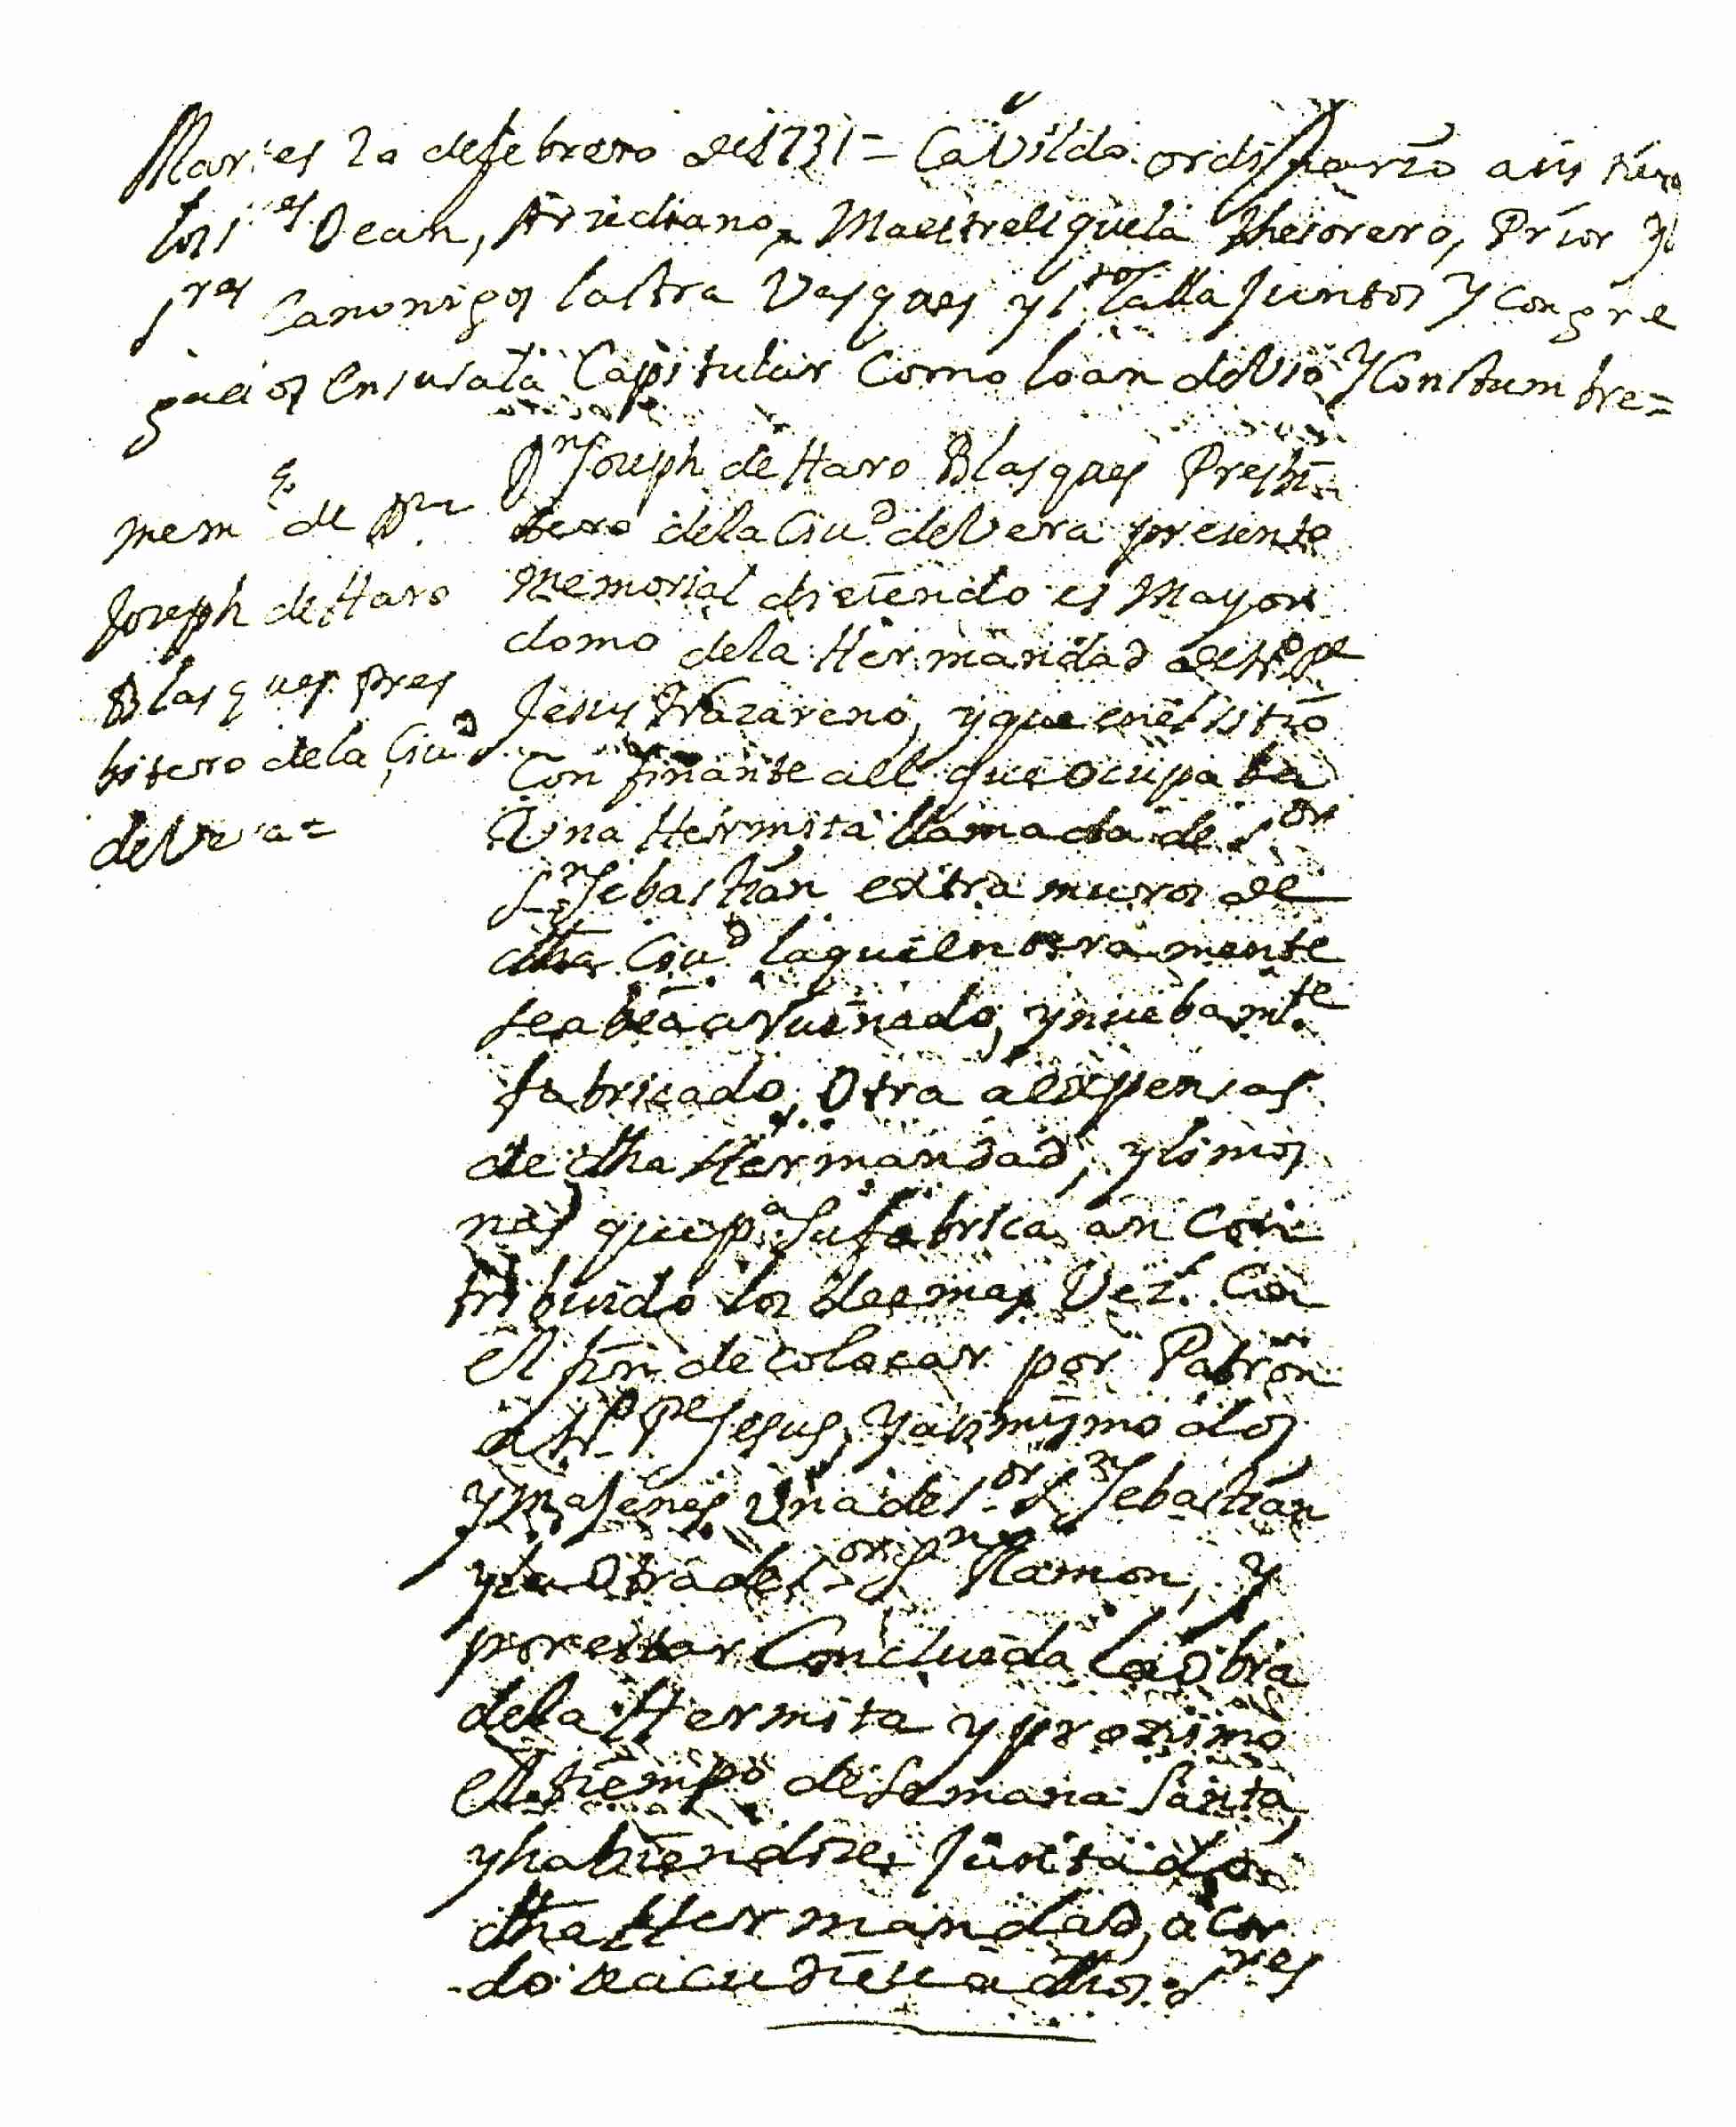 Martes 20 de febrero de 1731 = Cavildo ordinario asistieron
los s.res Dean, Arzediano, Maestreesquela Thesorero, Prior y
s.res Canonigos lastra Vasques y Juntos y Congre
gados en su sala Capitular Como lo an de Uso y Constumbre =
mem.l de D.n
Joseph de Haro
Blasques pres
bitero de la Ciu.d
de Vera =
D.n Joseph de Haro Blasques Presbi
tero de la Ciu.d de Vera presento
memorial diciendo es Mayor
domo de la Hermandad de N.ro P.e
Jesus Nazareno, y que en el sitio
Confinante all que ocupaba
Una Hermita llamada de S.or
S.n Sebastian extra muros de
dha Ciu.d la que enteramente
se abia arruinado, y nuebam.te
fabricado Otra a expensas
de dha Hermandad, y limos
nas que p.a su fabrica an Con
tribuido los demas Vez.s Con
el fin de colocar por Patron
a N.ro P.e Jesus, y asimismo dos
ymajenes Una de s.or S.n Sebastian
y la Otra de s.or S.n Ramon, y
por estar Concluida la obra
de la Hermita y proximo
el tiempo de Semana Santa,
y habiendose Juntado
dha Hermandad, acor
do se acudiese a dhos S.res